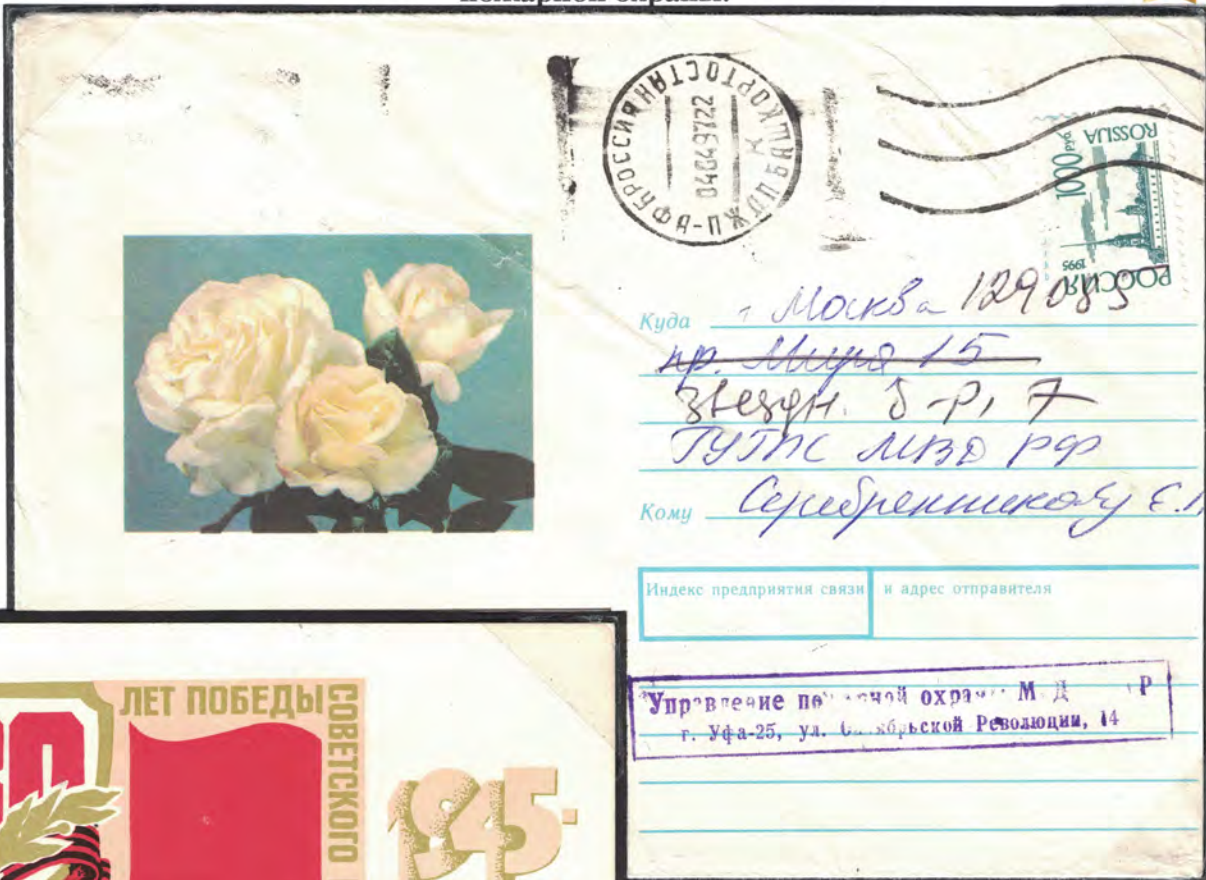 пожарной охраны.
БАШКОРТОСТАН
РОССИЯ
04049722
1000 руб.
ROSSIJA
1995
РОССИЯ
Куда г Москва 129085
пр. Мира 15
Звездн. б-р, 7
ГУГПС МВД РФ
Кому Серебренникову Е.
Индекс предприятия связи и адрес отправителя
Управление охраны М Д Р
г. Уфа-25, ул. Революции, 14
ЛЕТ ПОБЕДЫ
СОВЕТСКОГО
1945-